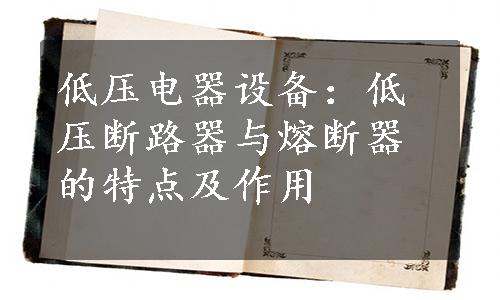 低压电器设备：低
压断路器与熔断器
的特点及作用